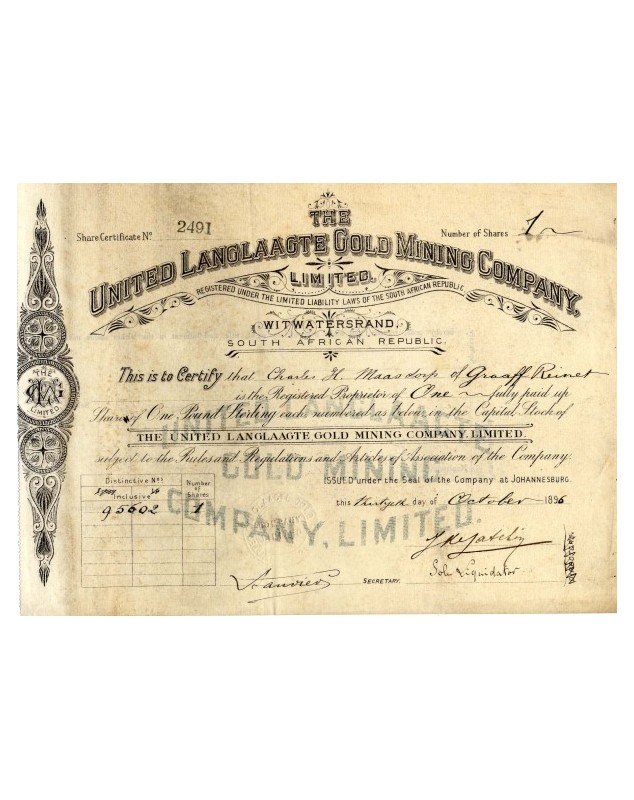 Share Certificate No. 2491
Number of Shares 1
THE
UNITED LANGLAAGTE GOLD MINING COMPANY,
LIMITED.
REGISTERED UNDER THE LIMITED LIABILITY LAWS OF THE SOUTH AFRICAN REPUBLIC.
WITWATERSRAND,
SOUTH AFRICAN REPUBLIC.
This is to Certify that Charles H Maasdorp of Graaff Reinet
is the Registered Proprietor of One fully paid up
Shares of One Pound Sterling each numbered as below in the Capital Stock of
THE UNITED LANGLAAGTE GOLD MINING COMPANY, LIMITED.
subject to the Rules and Regulations and Articles of Association of the Company.
UNITED LANGLAAGTE
GOLD MINING
COMPANY, LIMITED.
THE
LIMITED
ISSUED under the Seal of the Company at JOHANNESBURG
this thirtyeth day of October 1896
Distinctive Nos.
Inclusive
Number of Shares
95602 1
SECRETARY.
Sole Liquidator